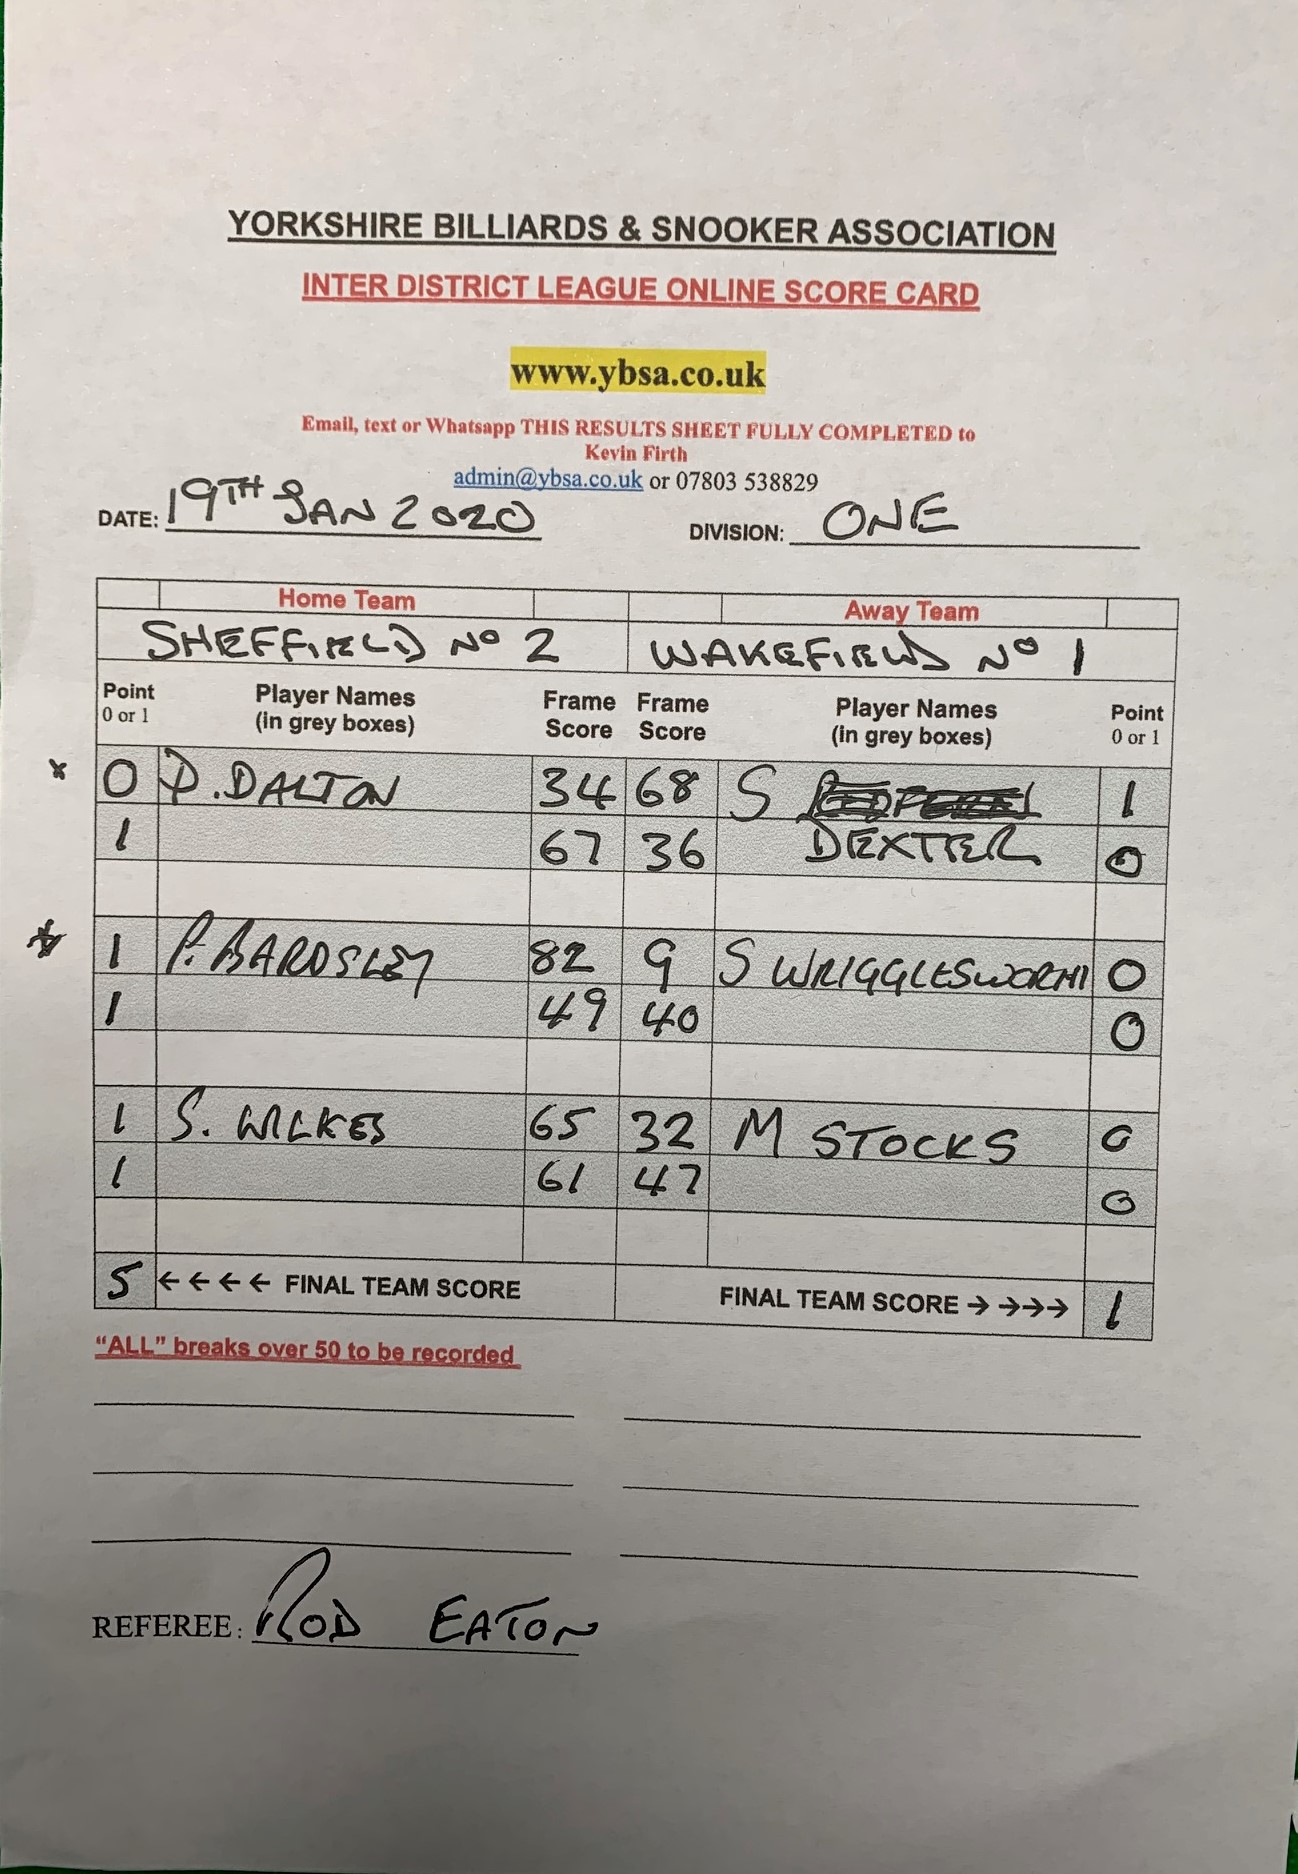 YORKSHIRE BILLIARDS & SNOOKER ASSOCIATION
INTER DISTRICT LEAGUE ONLINE SCORE CARD
www.ybsa.co.uk
Email, text or Whatsapp THIS RESULTS SHEET FULLY COMPLETED to
Kevin Firth
admin@ybsa.co.uk or 07803 538829
DATE: 19TH JAN 2020 DIVISION: ONE
Home Team Away Team
SHEFFIELD No 2 WAKEFIELD No 1
Point Player Names Frame Frame Player Names Point
0 or 1 (in grey boxes) Score Score (in grey boxes) 0 or 1
0 D. DALTON 34 68 S 1
1 67 36 DEXTER 0
1 P. BARDSLEY 82 9 S WRIGGLESWORTH 0
1 49 40 0
1 S. WILKES 65 32 M STOCKS 0
1 61 47 0
5 ←←←← FINAL TEAM SCORE FINAL TEAM SCORE →→→→ 1
“ALL” breaks over 50 to be recorded
REFEREE: ROD EATON